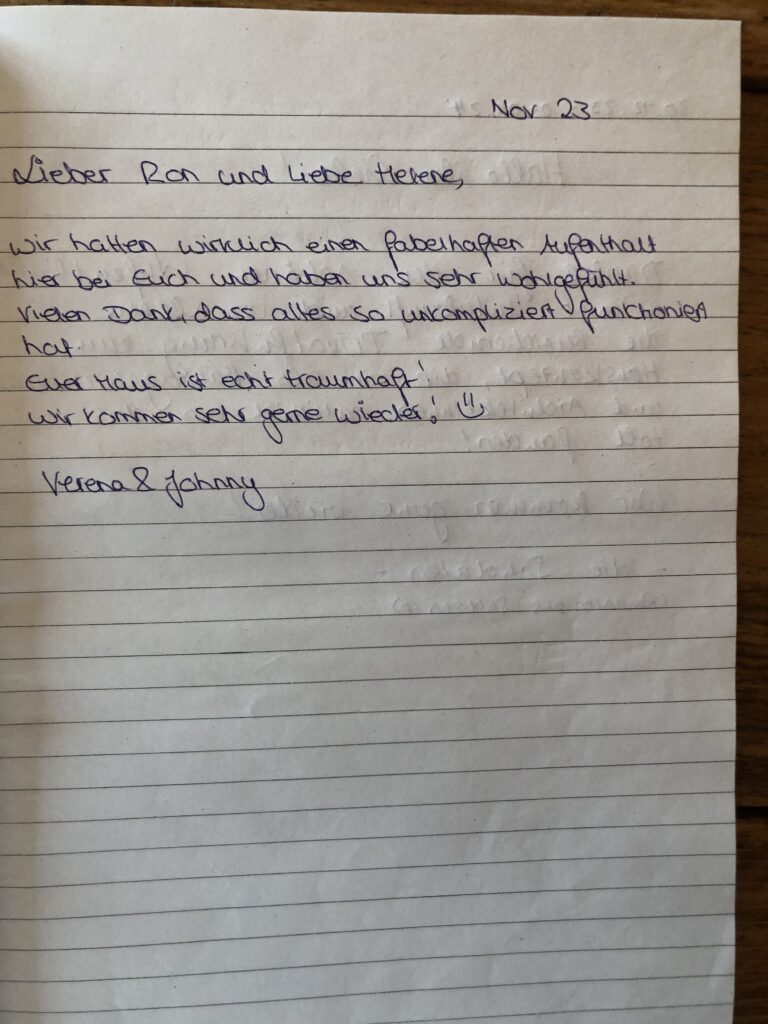 Nov 23
Lieber Ron und Liebe Helene,
wir hatten wirklich einen fabelhaften Aufenthalt
hier bei Euch und haben uns sehr wohlgefühlt.
Vielen Dank, dass alles so unkompliziert funktioniert
hat.
Euer Haus ist echt traumhaft!
Wir kommen sehr gerne wieder! :)
Verena & Johnny